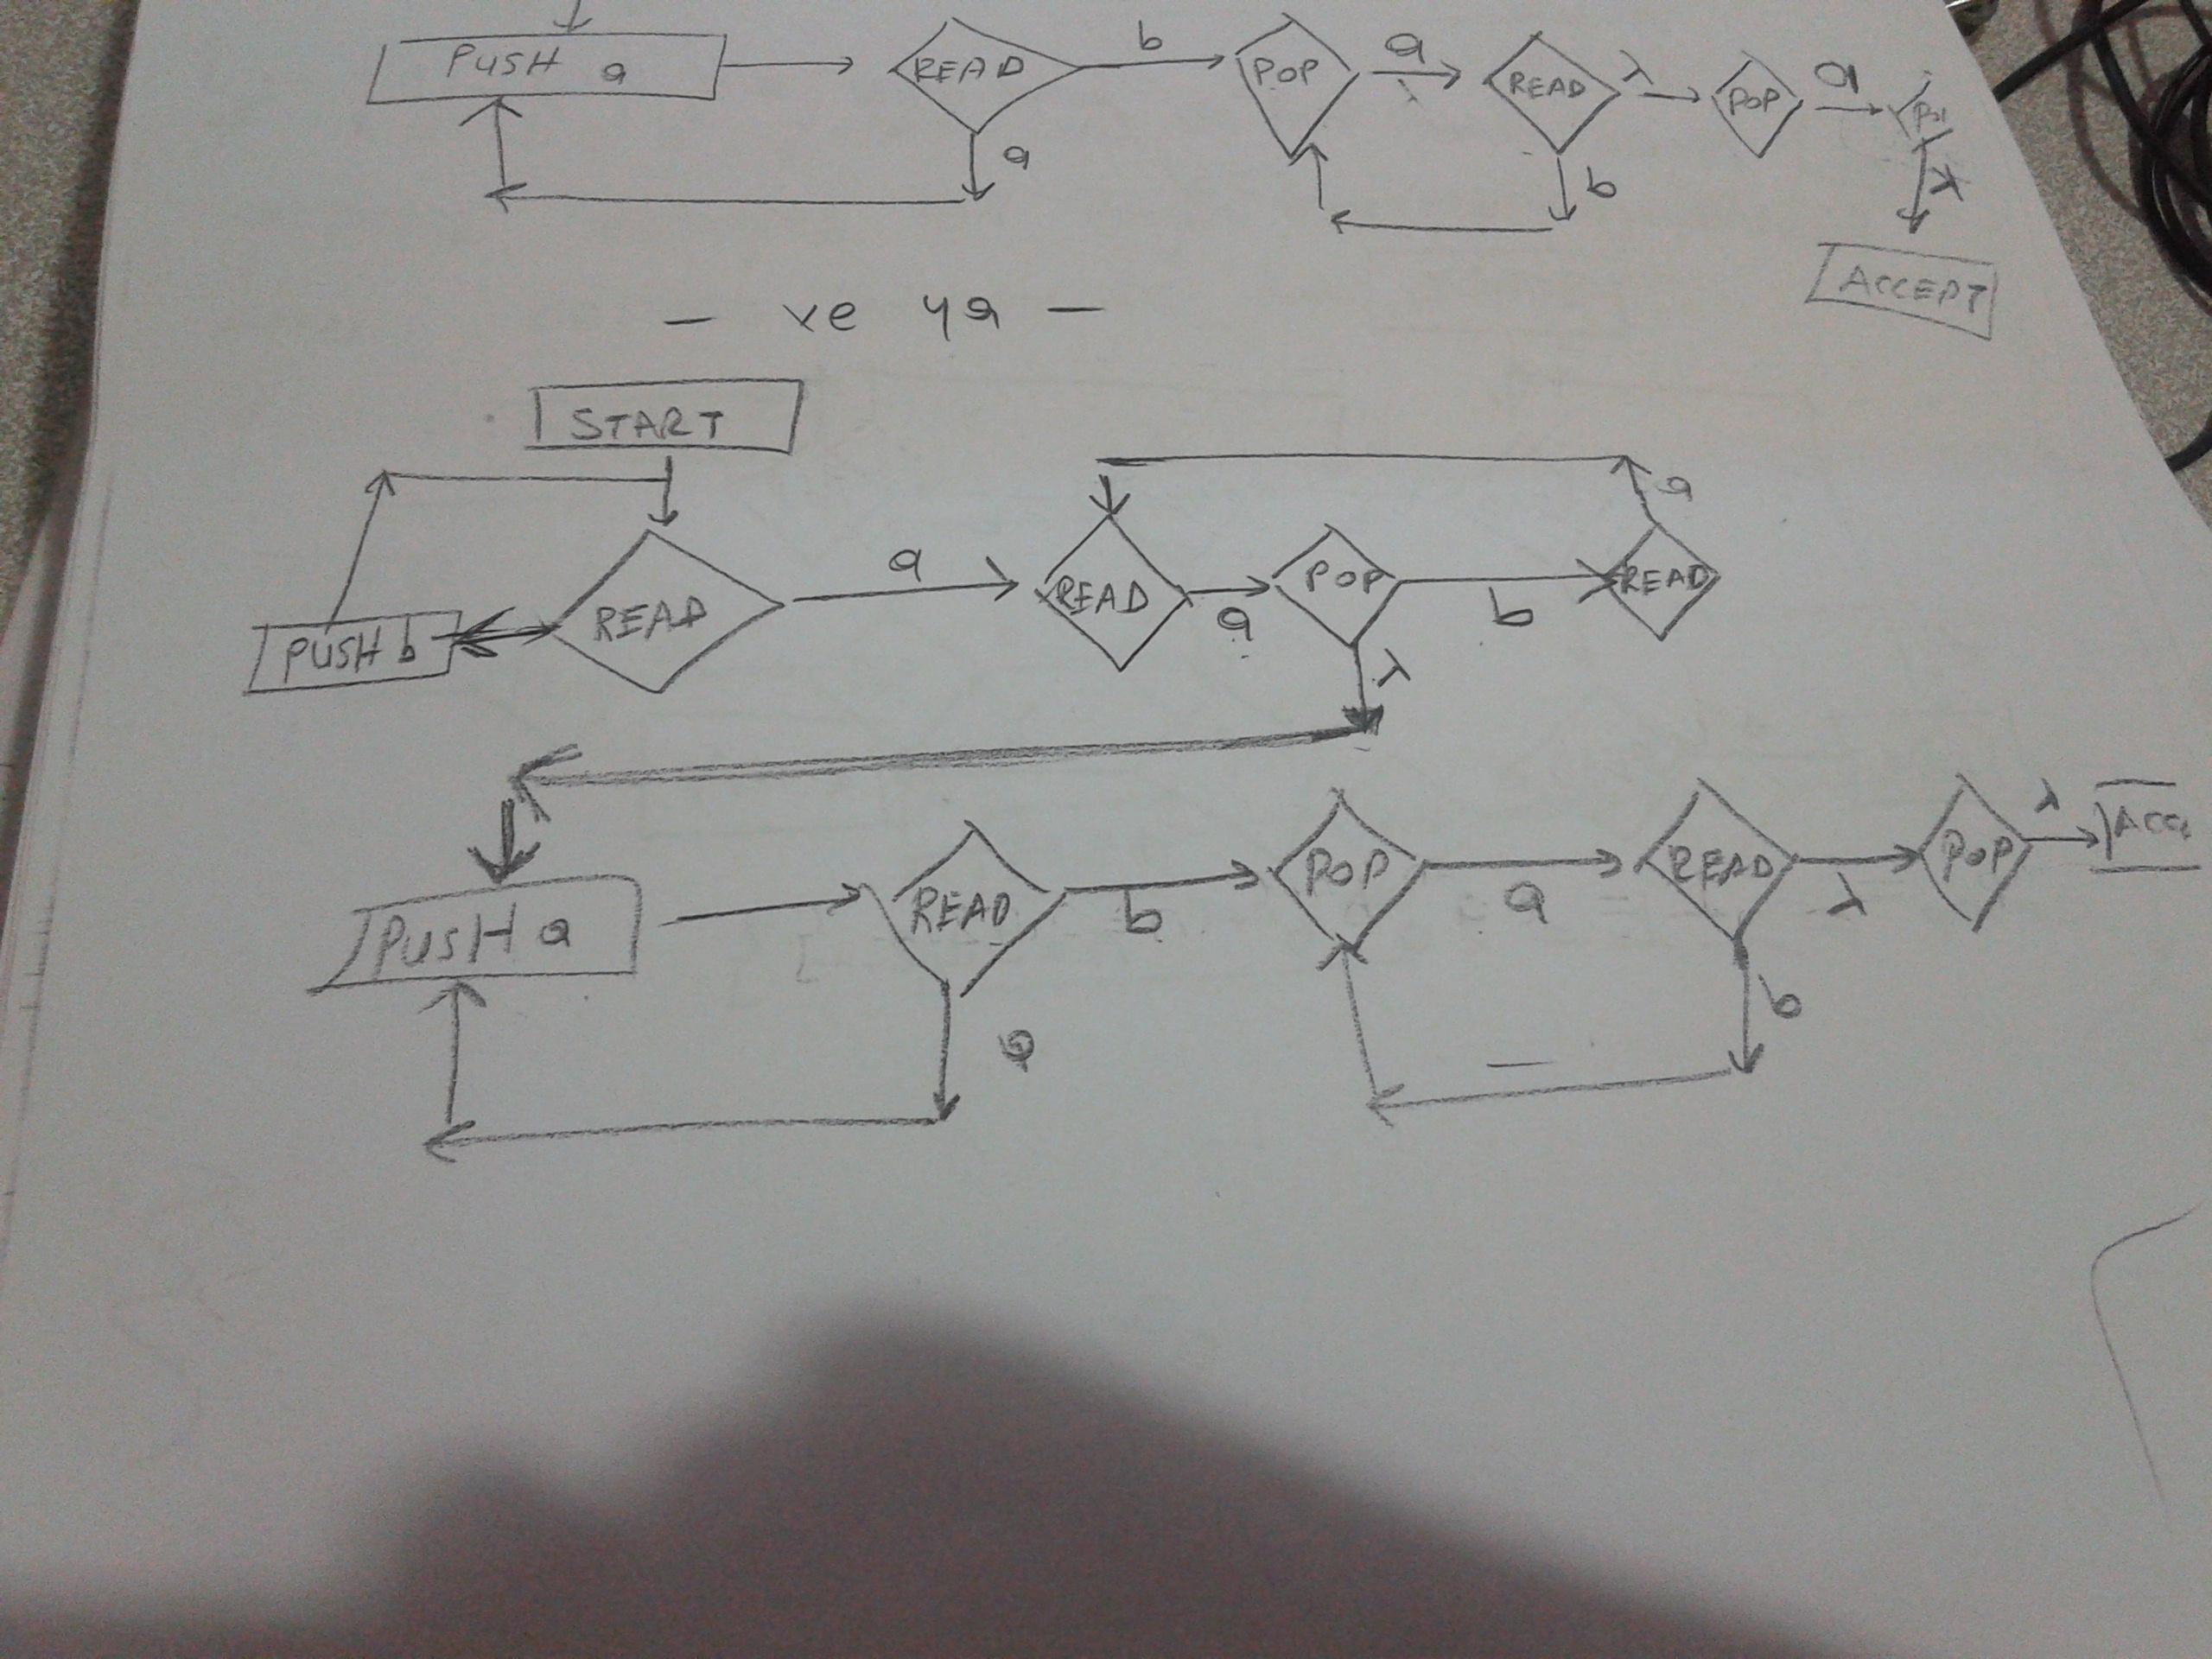 PUSH a READ b POP a READ λ POP a
a b λ
ACCEPT
- ve ya -
START
a
READ a READ a POP b READ
PUSH b
λ
PUSH a READ b POP a READ λ POP λ
a b